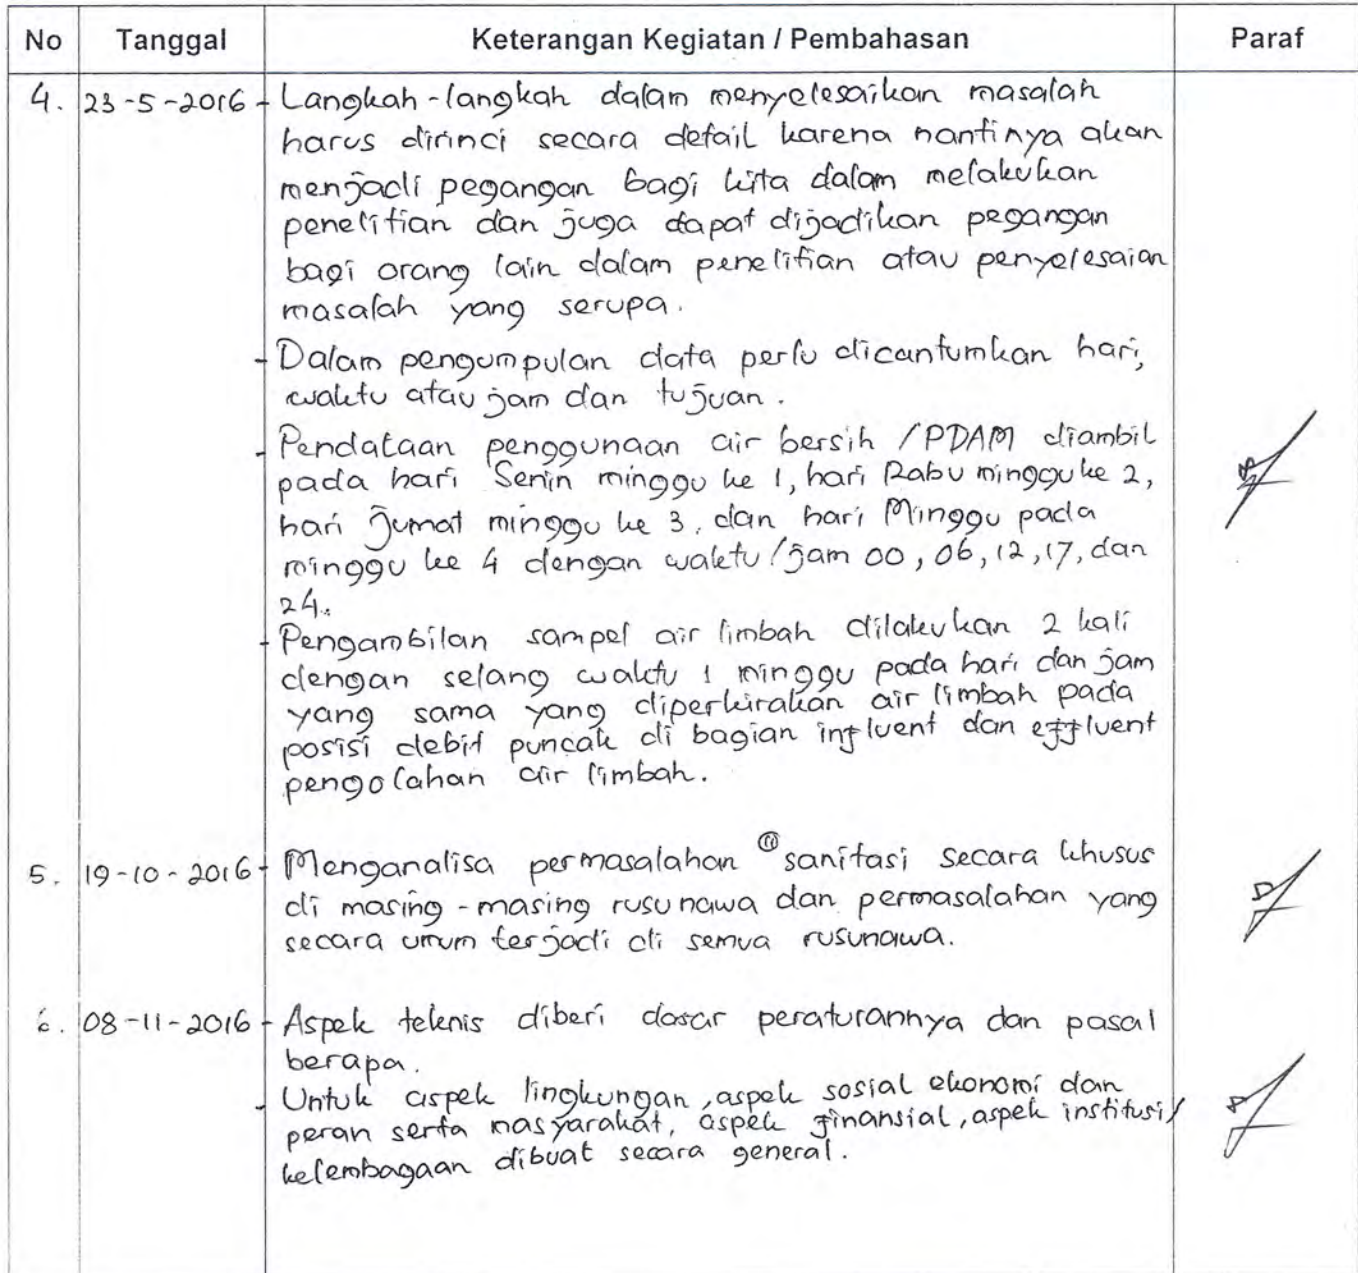 No Tanggal Keterangan Kegiatan / Pembahasan Paraf
4. 23-5-2016 - Langkah-langkah dalam menyelesaikan masalah
harus dirinci secara detail karena nantinya akan
menjadi pegangan bagi kita dalam melakukan
penelitian dan juga dapat dijadikan pegangan
bagi orang lain dalam penelitian atau penyelesaian
masalah yang serupa.
- Dalam pengumpulan data perlu dicantumkan hari,
waktu atau jam dan tujuan.
- Pendataan penggunaan air bersih /PDAM diambil
pada hari Senin minggu ke 1, hari Rabu minggu ke 2,
hari Jumat minggu ke 3, dan hari Minggu pada
minggu ke 4 dengan waktu/jam 00, 06, 12, 17, dan
24.
- Pengambilan sampel air limbah dilakukan 2 kali
dengan selang waktu 1 minggu pada hari dan jam
yang sama yang diperkirakan air limbah pada
posisi debit puncak di bagian influent dan effluent
pengolahan air limbah.
5. 19-10-2016 - Menganalisa permasalahan sanitasi secara khusus
di masing-masing rusunawa dan permasalahan yang
secara umum terjadi di semua rusunawa.
6. 08-11-2016 - Aspek teknis diberi dasar peraturannya dan pasal
berapa.
- Untuk aspek lingkungan, aspek sosial ekonomi dan
peran serta masyarakat, aspek finansial, aspek institusi/
kelembagaan dibuat secara general.